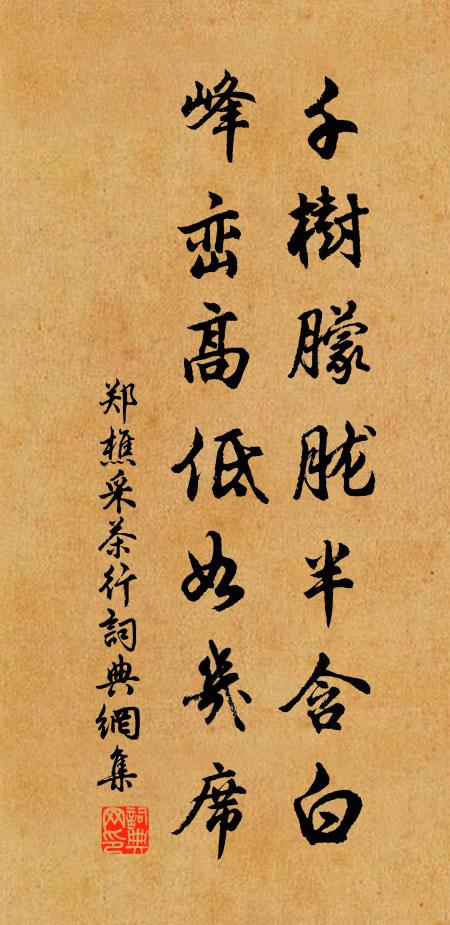 千樹朦胧半含白
峰峦高低如几席
郑樵采茶行詞典網集
詞典网印